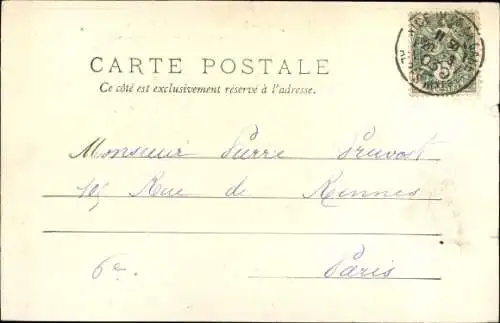 CARTE POSTALE
Ce côté est exclusivement réservé à l'adresse.
Monsieur Pierre Pruvost
105 Rue de Rennes
6e Paris
5